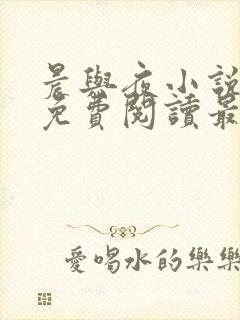 晨與夜小說
免費閱讀最
愛喝水的樂樂